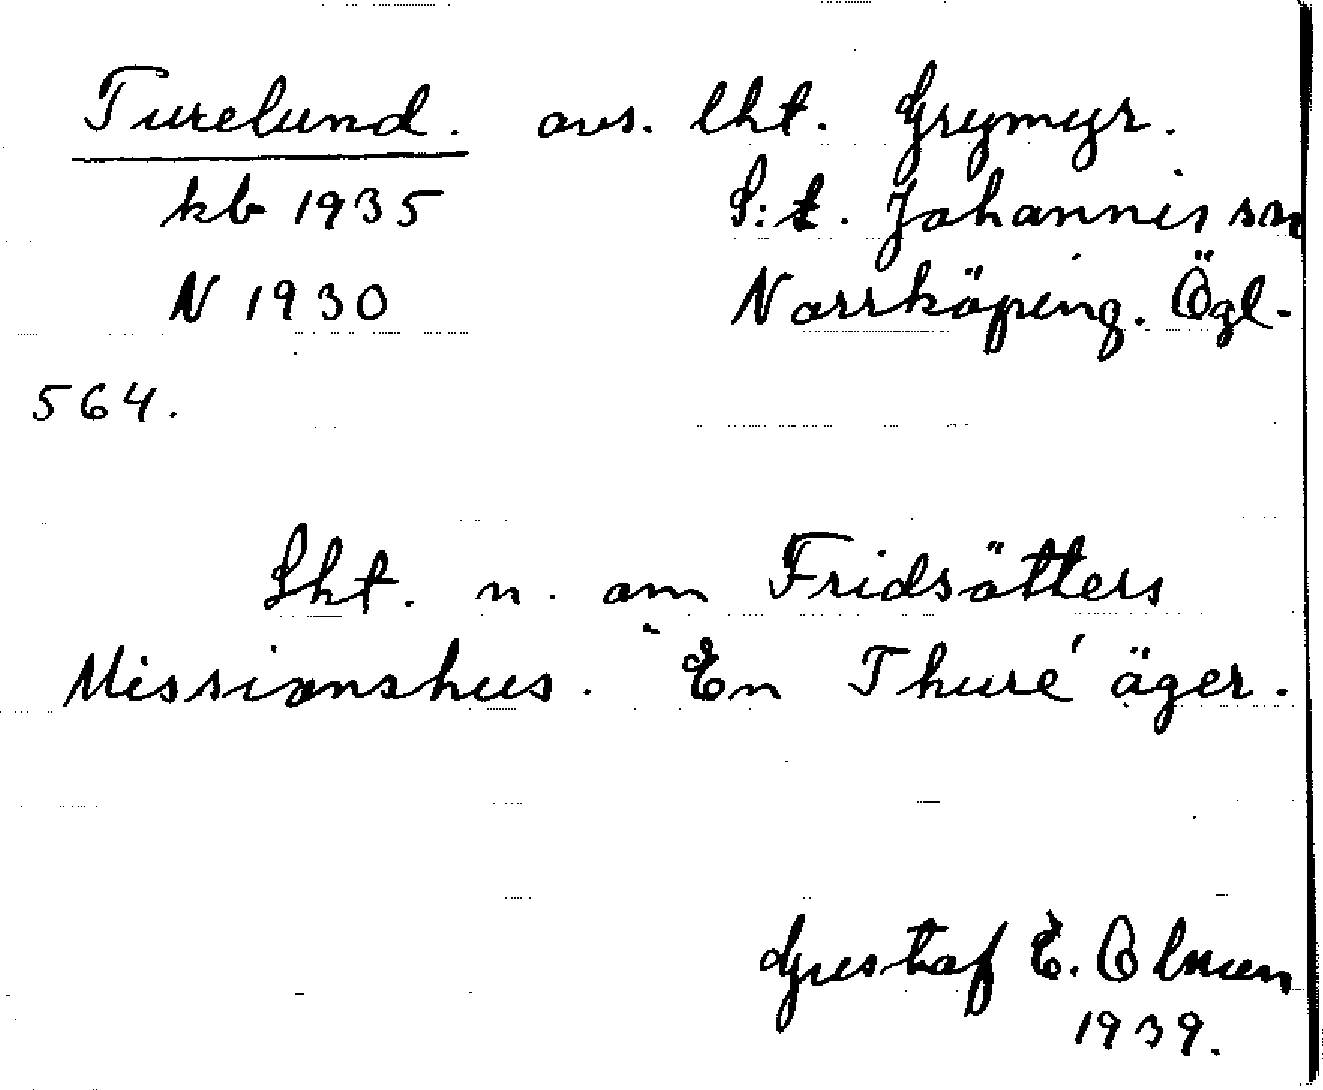 Turelund. avs. lht. Grymyr.
kb 1935 S:t. Johannis sn
N 1930 Norrköping. Ögl.
564.
Lht. n. om Fridsätters
Missionshus. En Thuré äger.
Gustaf E. Olmen
1939.